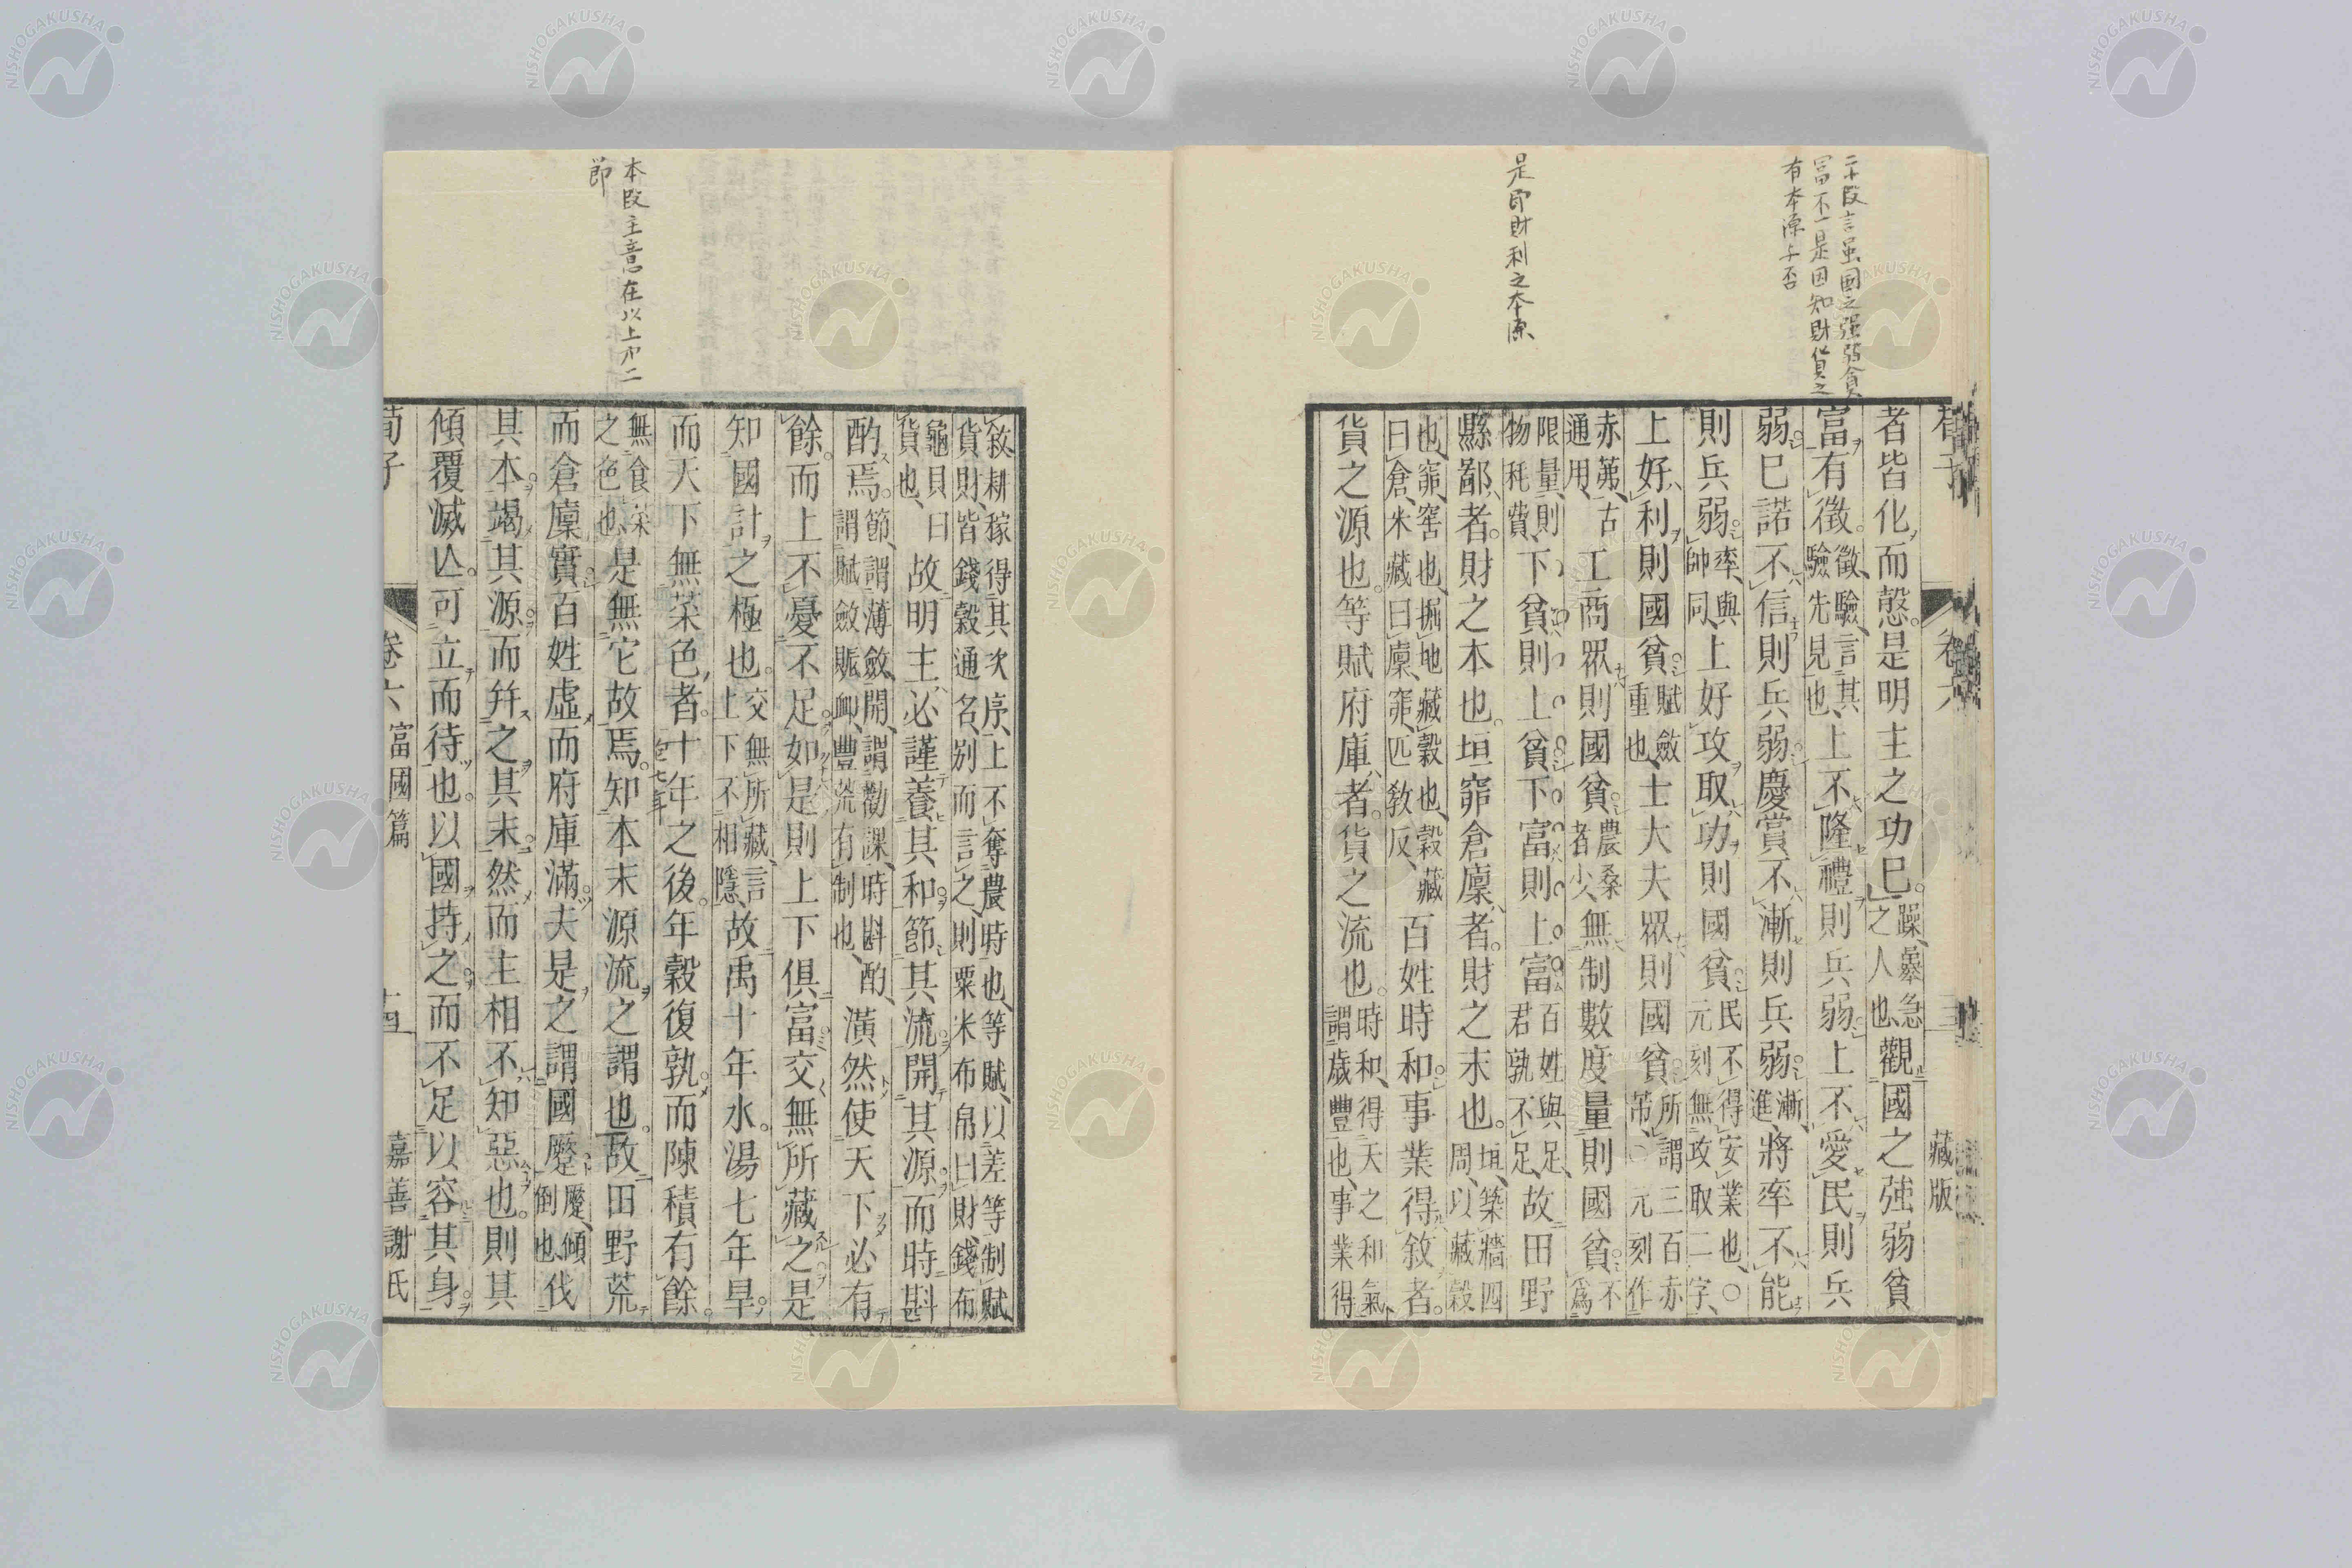 二十段言虽國之强弱貧
富不一是因知財貨之
有本源与否
是即財利之本源
卷六 藏版
者皆化而愨。是明主之功已。躁暴急之人也、觀國之強弱貧
富有徵。徵驗、言其驗先見也、上不隆禮則兵弱。上不愛民則兵
弱。已諾不信則兵弱。慶賞不漸則兵弱。漸進、將率不能
則兵弱。率、與帥同、上好攻取功則國貧。民不得安業也、〇元刻無攻取二字、
上好利則國貧。賦斂重也、士大夫眾則國貧。所謂三百赤芾、〇元刻作
赤茀、古通用、工商眾則國貧。農桑者少、無制數度量則國貧。不爲
限量、則物秏費、下貧則上貧。下富則上富。百姓與足、君孰不足、故田野
縣鄙者。財之本也。垣窌倉廩者。財之末也。垣、築牆四周、以藏穀
也、窌、窖也、掘地藏穀也、穀藏曰倉、米藏曰廩、窌、匹教反、百姓時和。事業得敘者。
貨之源也。等賦府庫者。貨之流也。時和、得天之和氣、謂歲豐也、事業得
敘、耕稼得其次序、上不奪農時也、等賦、以差等制賦、
貨財、皆錢穀通名、別而言之、則粟米布帛曰財、錢布
龜貝曰貨也、故明主必謹養其和。節其流。開其源。而時斟
酌焉。節、謂薄斂、開、謂勸課、時斟酌、謂賦斂賑卹、豐荒有制也、潢然使天下必有
餘。而上不憂不足。如是則上下俱富。交無所藏之。是
知國計之極也。交無所藏、言上下不相隱、故禹十年水。湯七年旱。
而天下無菜色者。十年之後。年穀復孰。而陳積有餘。
無食菜之色也、是無它故焉。知本末源流之謂也。故田野荒
而倉廩實。百姓虛而府庫滿。夫是之謂國蹷。蹷、傾倒也、伐
其本。竭其源。而并之其末。然而主相不知惡也。則其
傾覆滅亾。可立而待也。以國持之。而不足以容其身。
荀子 卷六 富國篇 十四 嘉善謝氏
本段主意在以上
節